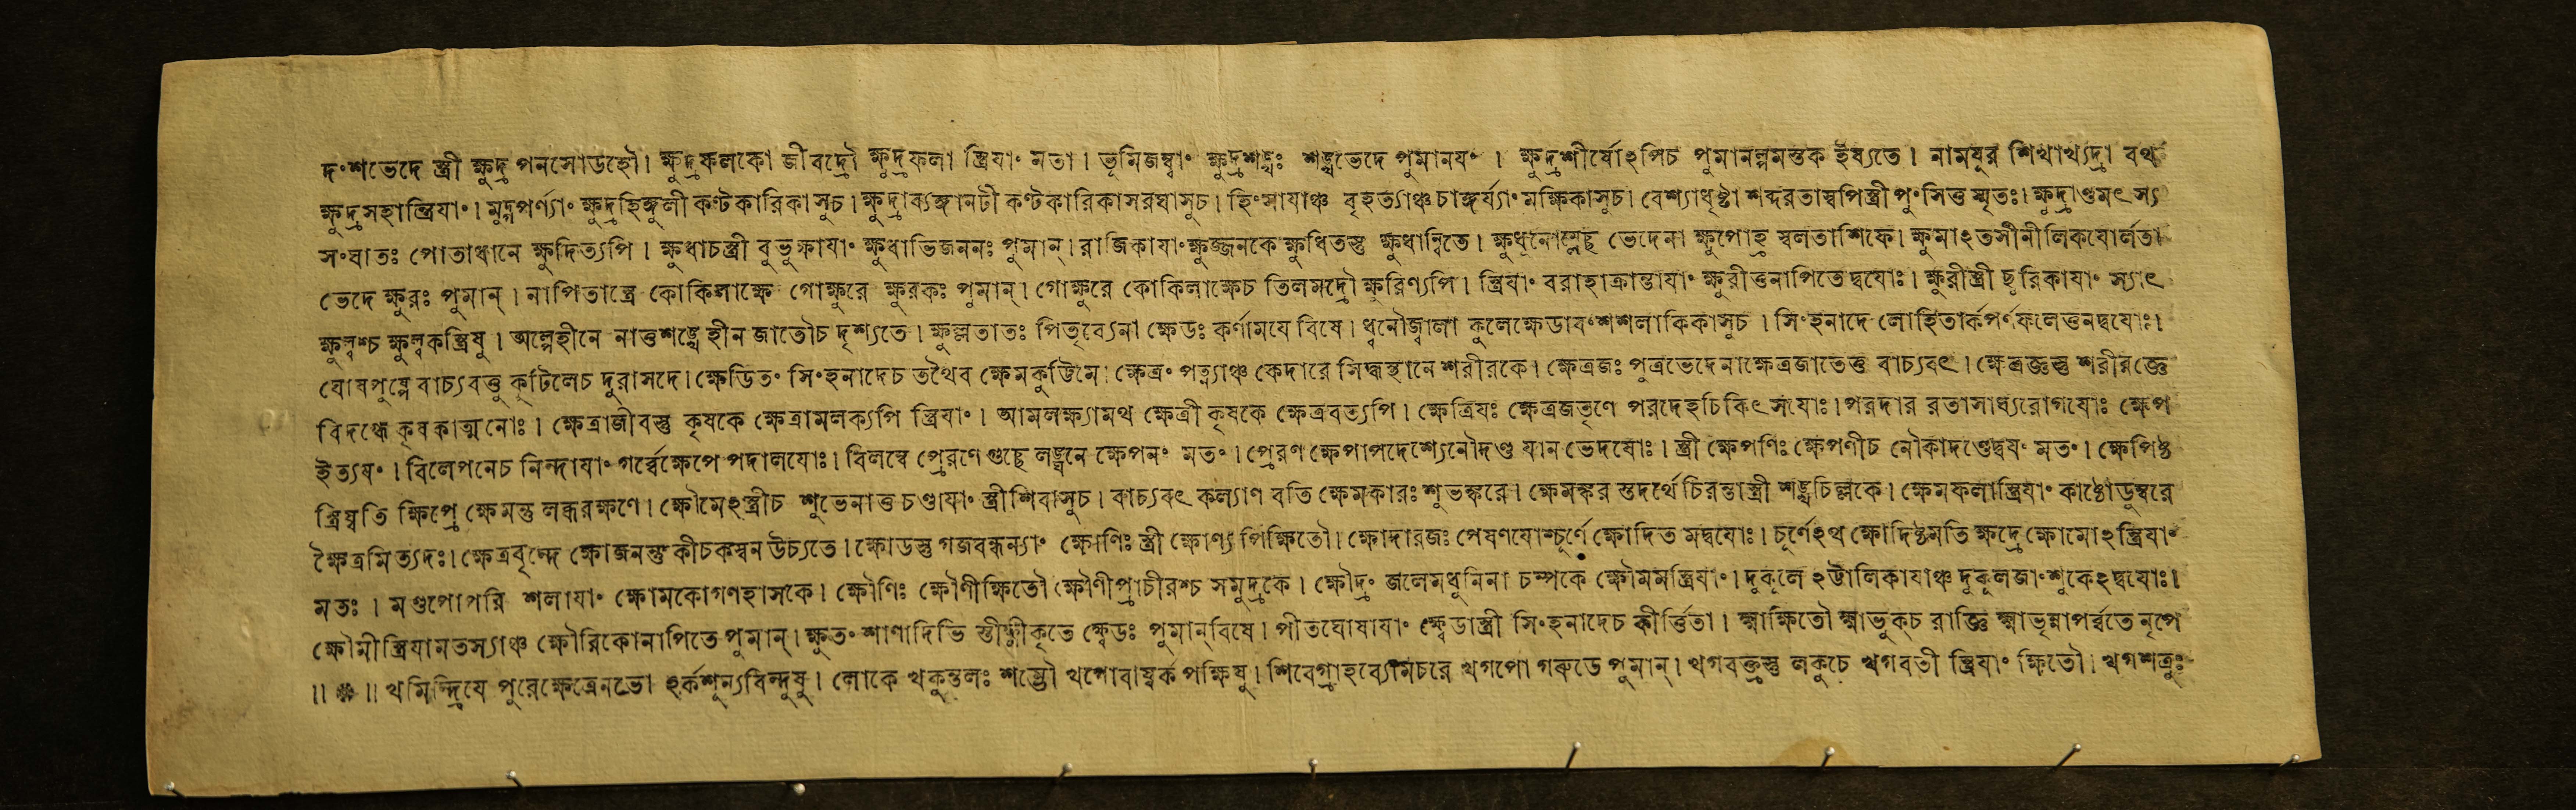 দংশভেদে স্ত্রী ক্ষুদ্র পনসোডহৌ। ক্ষুদ্রফলকো জীবদ্রৌ ক্ষুদ্রফলা স্ত্রিযাং মতা। ভূমিজম্বাং ক্ষুদ্রশঙ্খঃ শঙ্খভেদে পুমানযং। ক্ষুদ্রশীর্ষোঽপিচ পুমানল্পমস্তক ইষ্যতে। নাময়ুর শিখাখ্যদ্রা বথ
ক্ষুদ্রসহাস্ত্রিযাং। মুদ্গপর্ণ্যাং ক্ষুদ্রহিঙ্গুলী কণ্টকারিকাসুচ। ক্ষুদ্রাব্যঙ্গানটী কণ্টকারিকাসরঘাসুচ। হিংস্রাযাঞ্চ বৃহত্যাঞ্চ চাঙ্গর্য্যাং মক্ষিকাসুচ। বেশ্যাধৃষ্টা শব্দরতাস্বপিস্ত্রী পুংসিত্ত স্মৃতঃ। ক্ষুদ্রাণ্ডমৎস্য
সংঘাতঃ পোতাধানে ক্ষুদিত্যপি। ক্ষুধাচস্ত্রী বুভুক্ষাযাং ক্ষুধাভিজননঃ পুমান্। রাজিকাযাং ক্ষুজ্জনকে ক্ষুধিতস্তু ক্ষুধান্বিতে। ভেদেনা ক্ষুপোহ্র স্বলতাশিফে। ক্ষুমাঽতসীনীলিকযোর্লতা
ভেদে ক্ষুরঃ পুমান্। নাপিতাস্ত্রে কোকিলাক্ষে গোক্ষুরে ক্ষুরকঃ পুমান্। গোক্ষুরে কোকিলাক্ষেচ তিলমদ্রৌ ক্ষুরিণ্যপি। স্ত্রিযাং বরাহাক্রান্তাযাং ক্ষুরীত্তনাপিতে দ্বযোঃ। ক্ষুরীস্ত্রী ছুরিকাযাং স্যাৎ
ক্ষুল্লশ্চ ক্ষুল্লকস্ত্রিষু। অল্পেহীনে নাত্তশঙ্খে হীন জাতৌচ দৃশ্যতে। ক্ষুল্লতাতঃ পিতৃব্যেনা ক্ষেডঃ কর্ণামযে বিষে। ধ্বনৌজ্বালা কুলেক্ষেডাবংশশলাকিকাসুচ। সিংহনাদে লোহিতার্কপর্ণফলেত্তনদ্বযোঃ।
ঘোষপুষ্পে বাচ্যবত্তু কুটিলেচ দুরাসদে। ক্ষেডিতং সিংহনাদেচ তথৈব ক্ষেমকুট্টিমে। ক্ষেত্রং পত্ন্যাঞ্চ কেদারে সিদ্ধস্থানে শরীরকে। ক্ষেত্রজঃ পুত্রভেদেনাক্ষেত্রজাতেত্ত বাচ্যবৎ। ক্ষেত্রজ্ঞস্তু শরীরজ্ঞে
বিদগ্ধে কৃষকাত্মনোঃ। ক্ষেত্রাজীবস্তু কৃষকে ক্ষেত্রামলক্যপি স্ত্রিযাং। আমলক্ষ্যামথ ক্ষেত্রী কৃষকে ক্ষেত্রবত্যপি। ক্ষেত্রিযঃ ক্ষেত্রজতৃণে পরদেহচিকিৎসযোঃ। পরদার রতাসাধ্যরোগযোঃ ক্ষেপ
ইত্যযং। বিলেপনেচ নিন্দাযাং গর্ব্বেক্ষেপে পদালযোঃ। বিলম্বে প্রেরণে গুচ্ছে লঙ্ঘনে ক্ষেপনং মতং। প্রেরণ ক্ষেপাপদেশ্যেনৌদণ্ড যান ভেদযোঃ। স্ত্রী ক্ষেপণিঃ ক্ষেপণীচ নৌকাদণ্ডেদ্বযং মতং। ক্ষেপিষ্ঠ
স্ত্রিষ্বতি ক্ষিপ্রে ক্ষেমন্তু লব্ধরক্ষণে। ক্ষৌমেঽস্ত্রীচ শুভেনাত্ত চণ্ডাযাং স্ত্রীশিবাসুচ। বাচ্যবৎ কল্যাণ বতি ক্ষেমকারঃ শুভঙ্করে। ক্ষেমঙ্কর স্তদর্থেচিরন্তাস্ত্রী শঙ্খচিল্লকে। ক্ষেমফলাস্ত্রিযাং কাষ্ঠোডুম্বরে
ক্ষৈত্রমিত্যদঃ। ক্ষেত্রবৃন্দে ক্ষোজনন্তু কীচকস্বন উচ্যতে। ক্ষোডস্তু গজবন্ধন্যাং ক্ষোণিঃ স্ত্রী ক্ষোণ্য পিক্ষিতৌ। ক্ষোদারজঃ পেষণযোশ্চূর্ণে ক্ষোদিত মদ্বযোঃ। চূর্ণেঽথ ক্ষোদিষ্ঠমতি ক্ষদ্রে ক্ষোমোঽস্ত্রিযাং
মতঃ। মণ্ডপোপরি শলাযাং ক্ষোমকোগণহাসকে। ক্ষৌণিঃ ক্ষৌণীক্ষিতৌ ক্ষৌণীপ্রাচীরশ্চ সমুদ্রকে। ক্ষৌদ্রং জলেমধুনিনা চম্পকে ক্ষৌমমস্ত্রিযাং। দুকূলে ঽট্টালিকাযাঞ্চ দুকূলজাংশুকেঽদ্বযোঃ।
ক্ষৌমীস্ত্রিযামতস্যাঞ্চ ক্ষৌরিকোনাপিতে পুমান্। ক্ষুতং শাণাদিভি স্তীক্ষ্ণীকৃতে ক্ষ্বেডঃ পুমান্বিষে। পীতঘোষাযাং ক্ষ্বেডাস্ত্রী সিংহনাদেচ কীর্ত্তিতা। ক্ষ্মাক্ষিতৌ ক্ষ্মাভুক্চ রাজ্ঞি ক্ষ্মাভৃন্নাপর্ব্বতে নৃপে
॥ ❋ ॥ খমিন্দ্রিযে পুরেক্ষেত্রেনভো ঽর্কশূন্যবিন্দুষু। লোকে খকুন্তলঃ শম্ভৌ খগোবায্বর্ক পক্ষিষু। শিবেগ্রাহব্যোমচরে খগপো গরুডে পুমান্। খগবক্ত্রস্তু লকুচে খগবতী স্ত্রিযাং ক্ষিতৌ। খগশত্রুঃ